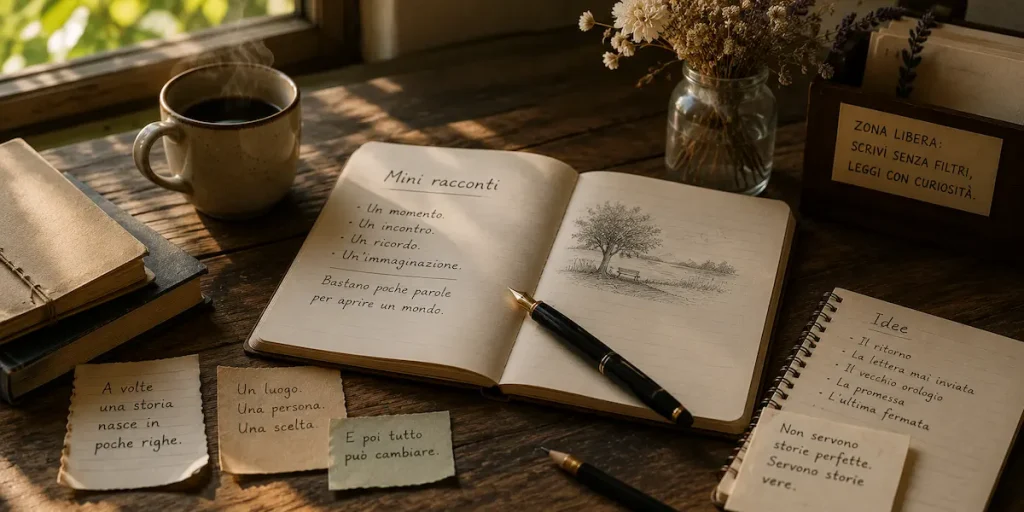 Mini racconti
- Un momento.
- Un incontro.
- Un ricordo.
- Un'immaginazione.
Bastano poche parole
per aprire un mondo.
ZONA LIBERA:
SCRIVI SENZA FILTRI,
LEGGI CON CURIOSITÀ.
Idee
- Il ritorno
- La lettera mai inviata
- Il vecchio orologio
- La promessa
- L'ultima fermata
Non servono
storie perfette.
Servono storie
vere.
A volte
una storia
nasce in
poche righe.
Un luogo.
Una persona.
Una scelta.
E poi tutto
può cambiare.